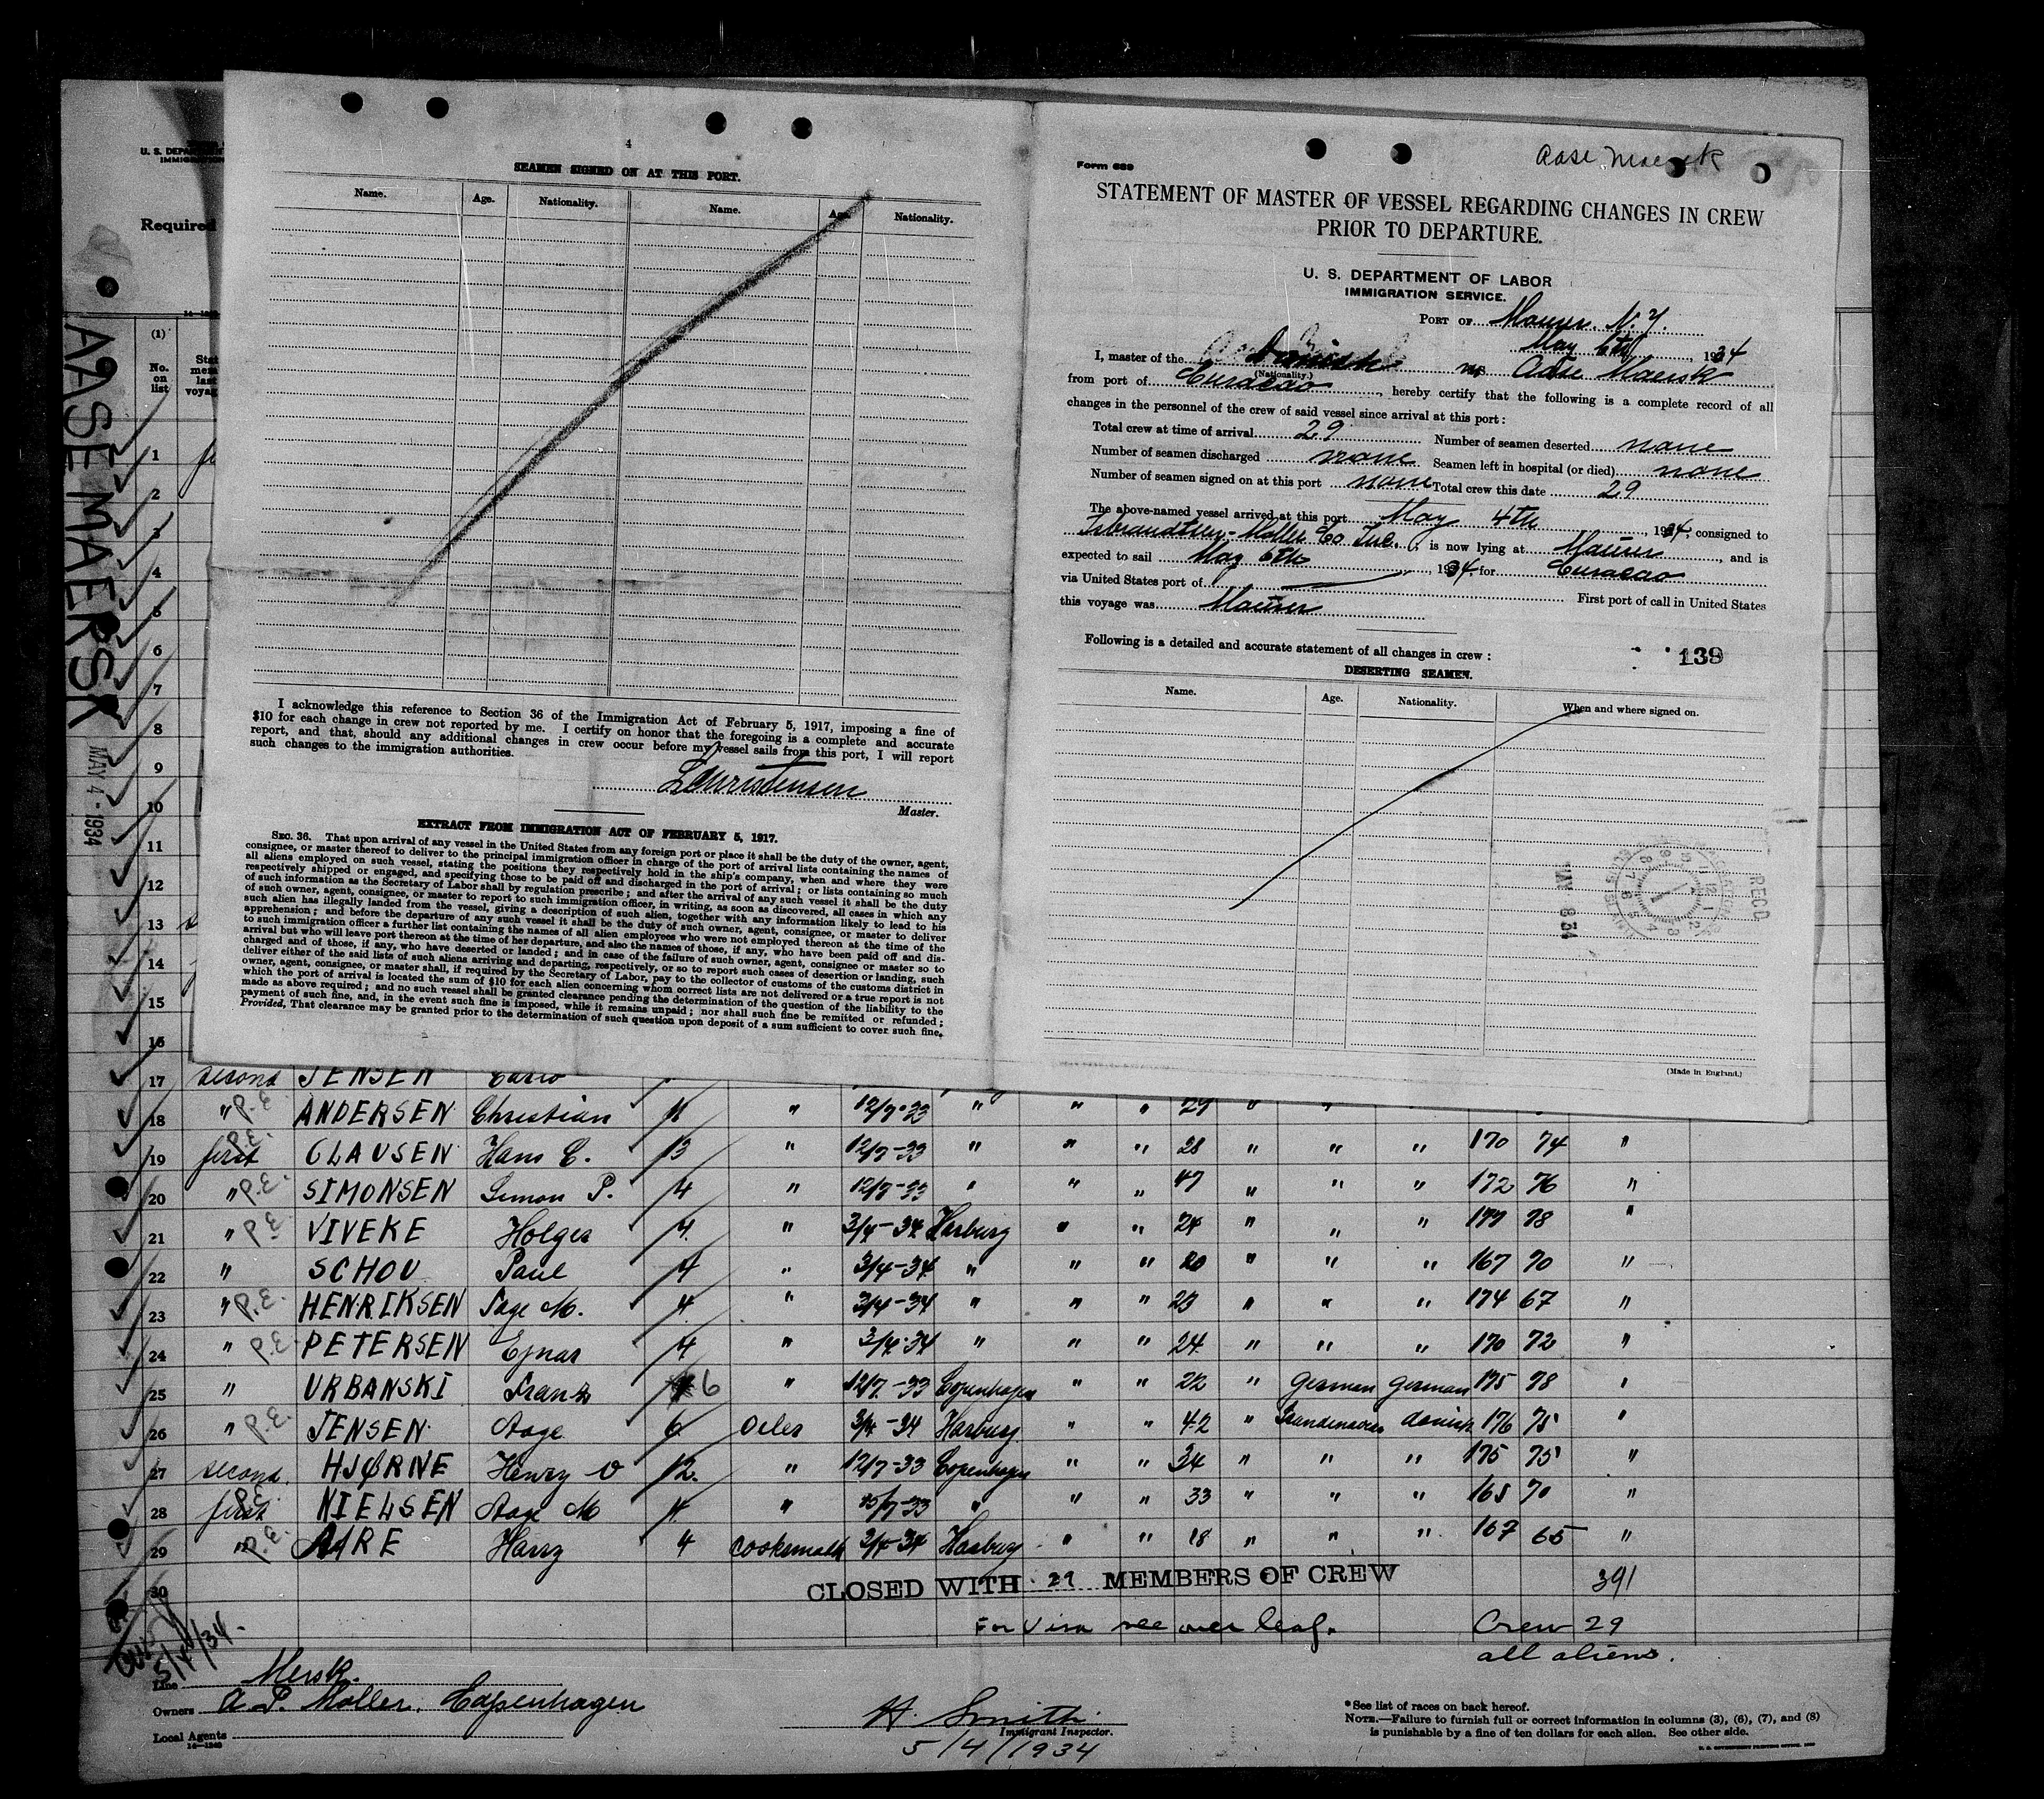 U. S. DEPAR
IMMIGRATION
Required
(1)
No. on list
AASE MAERSK
MAY 4 - 1934
4
SEAMEN SIGNED ON AT THIS PORT.
Name. Age. Nationality. Name. Age. Nationality.
I acknowledge this reference to Section 36 of the Immigration Act of February 5, 1917, imposing a fine of
$10 for each change in crew not reported by me. I certify on honor that the foregoing is a complete and accurate
report, and that, should any additional changes in crew occur before my vessel sails from this port, I will report
such changes to the immigration authorities.
LChristensen
Master.
EXTRACT FROM IMMIGRATION ACT OF FEBRUARY 5, 1917.
SEC. 36. That upon arrival of any vessel in the United States from any foreign port or place it shall be the duty of the owner, agent,
consignee, or master thereof to deliver to the principal immigration officer in charge of the port of arrival lists containing the names of
all aliens employed on such vessel, stating the positions they respectively hold in the ship's company, when and where they were
respectively shipped or engaged, and specifying those to be paid off and discharged in the port of arrival; or lists containing so much
of such information as the Secretary of Labor shall by regulation prescribe; and after the arrival of any such vessel it shall be the duty
of such owner, agent, consignee, or master to report to such immigration officer, in writing, as soon as discovered, all cases in which any
such alien has illegally landed from the vessel, giving a description of such alien, together with any information likely to lead to his
apprehension; and before the departure of any such vessel it shall be the duty of such owner, agent, consignee, or master to deliver
to such immigration officer a further list containing the names of all alien employees who were not employed thereon at the time of the
arrival but who will leave port thereon at the time of her departure, and also the names of those, if any, who have been paid off and dis-
charged and of those, if any, who have deserted or landed; and in case of the failure of such owner, agent, consignee or master so to
deliver either of the said lists of such aliens arriving and departing, respectively, or so to report such cases of desertion or landing, such
owner, agent, consignee, or master shall, if required by the Secretary of Labor, pay to the collector of customs of the customs district in
which the port of arrival is located the sum of $10 for each alien concerning whom correct lists are not delivered or a true report is not
made as above required; and no such vessel shall be granted clearance pending the determination of the question of the liability to the
payment of such fine, and, in the event such fine is imposed, while it remains unpaid; nor shall such fine be remitted or refunded;
Provided, That clearance may be granted prior to the determination of such question upon deposit of a sum sufficient to cover such fine.
Form 689
Aase Maersk
STATEMENT OF MASTER OF VESSEL REGARDING CHANGES IN CREW
PRIOR TO DEPARTURE.
U. S. DEPARTMENT OF LABOR
IMMIGRATION SERVICE.
PORT OF Maurer N. Y.
May 6th, 1934
I, master of the Danish ms Aase Maersk
(Nationality.)
from port of Curacao, hereby certify that the following is a complete record of all
changes in the personnel of the crew of said vessel since arrival at this port:
Total crew at time of arrival 29 Number of seamen deserted none
Number of seamen discharged none Seamen left in hospital (or died) none
Number of seamen signed on at this port none Total crew this date 29
The above-named vessel arrived at this port May 4th, 1934, consigned to
Isbrandtsen-Moller Co Inc., is now lying at Maurer, and is
expected to sail May 6th, 1934, for Curacao
via United States port of First port of call in United States
this voyage was Maurer
Following is a detailed and accurate statement of all changes in crew:
139
DESERTING SEAMEN.
Name. Age. Nationality. When and where signed on.
REC'D
MAY 8 34
(Made in England.)
1
2
3
4
5
6
7
8
9
10
11
12
13
14
15
16
17 second JENSEN
18 " P.E. ANDERSEN Christian 11 " 12/7-33 " " " 29 " "
19 first P.E. CLAUSEN Hans C. 13 " 12/7-33 " " " 28 " " " 170 74 "
20 " P.E. SIMONSEN Simon P. 4 " 12/7-33 " " " 47 " " " 172 76 "
21 " P.E. VIVEKE Holger 4 " 3/4-34 Harburg " " 24 " " " 177 78 "
22 " SCHOU Paul 4 " 3/4-34 " " " 20 " " " 167 70 "
23 " P.E. HENRIKSEN Aage M. 4 " 3/4-34 " " " 23 " " " 174 67 "
24 " P.E. PETERSEN Ejnar 4 " 3/4-34 " " " 24 " " " 170 72 "
25 " URBANSKI Franz 6 " 12/7-33 Copenhagen " " 22 " German German 175 78 "
26 " P.E. JENSEN Aage 6 Oiler 3/4-34 Harburg " " 42 " Scandinavian danish 176 75 "
27 second HJØRNE Henry V 12 " 12/7-33 Copenhagen " " 34 " " " 175 75 "
28 first P.E. NIELSEN Aage M 4 " /7-33 " " " 33 " " " 165 70 "
29 " P.E. AARE Harry 4 cooksmath 3/4-34 Harburg " " 18 " " " 167 65 "
30
CLOSED WITH 29 MEMBERS OF CREW
391
For Visa see over leaf.
Crew 29
all aliens.
5/4/34
Line Mersk.
Owners A. P. Moller, Copenhagen
Local Agents
H. Smith
Immigrant Inspector.
5/4/1934
*See list of races on back hereof.
NOTE.—Failure to furnish full or correct information in columns (3), (6), (7), and (8)
is punishable by a fine of ten dollars for each alien. See other side.
U. S. GOVERNMENT PRINTING OFFICE